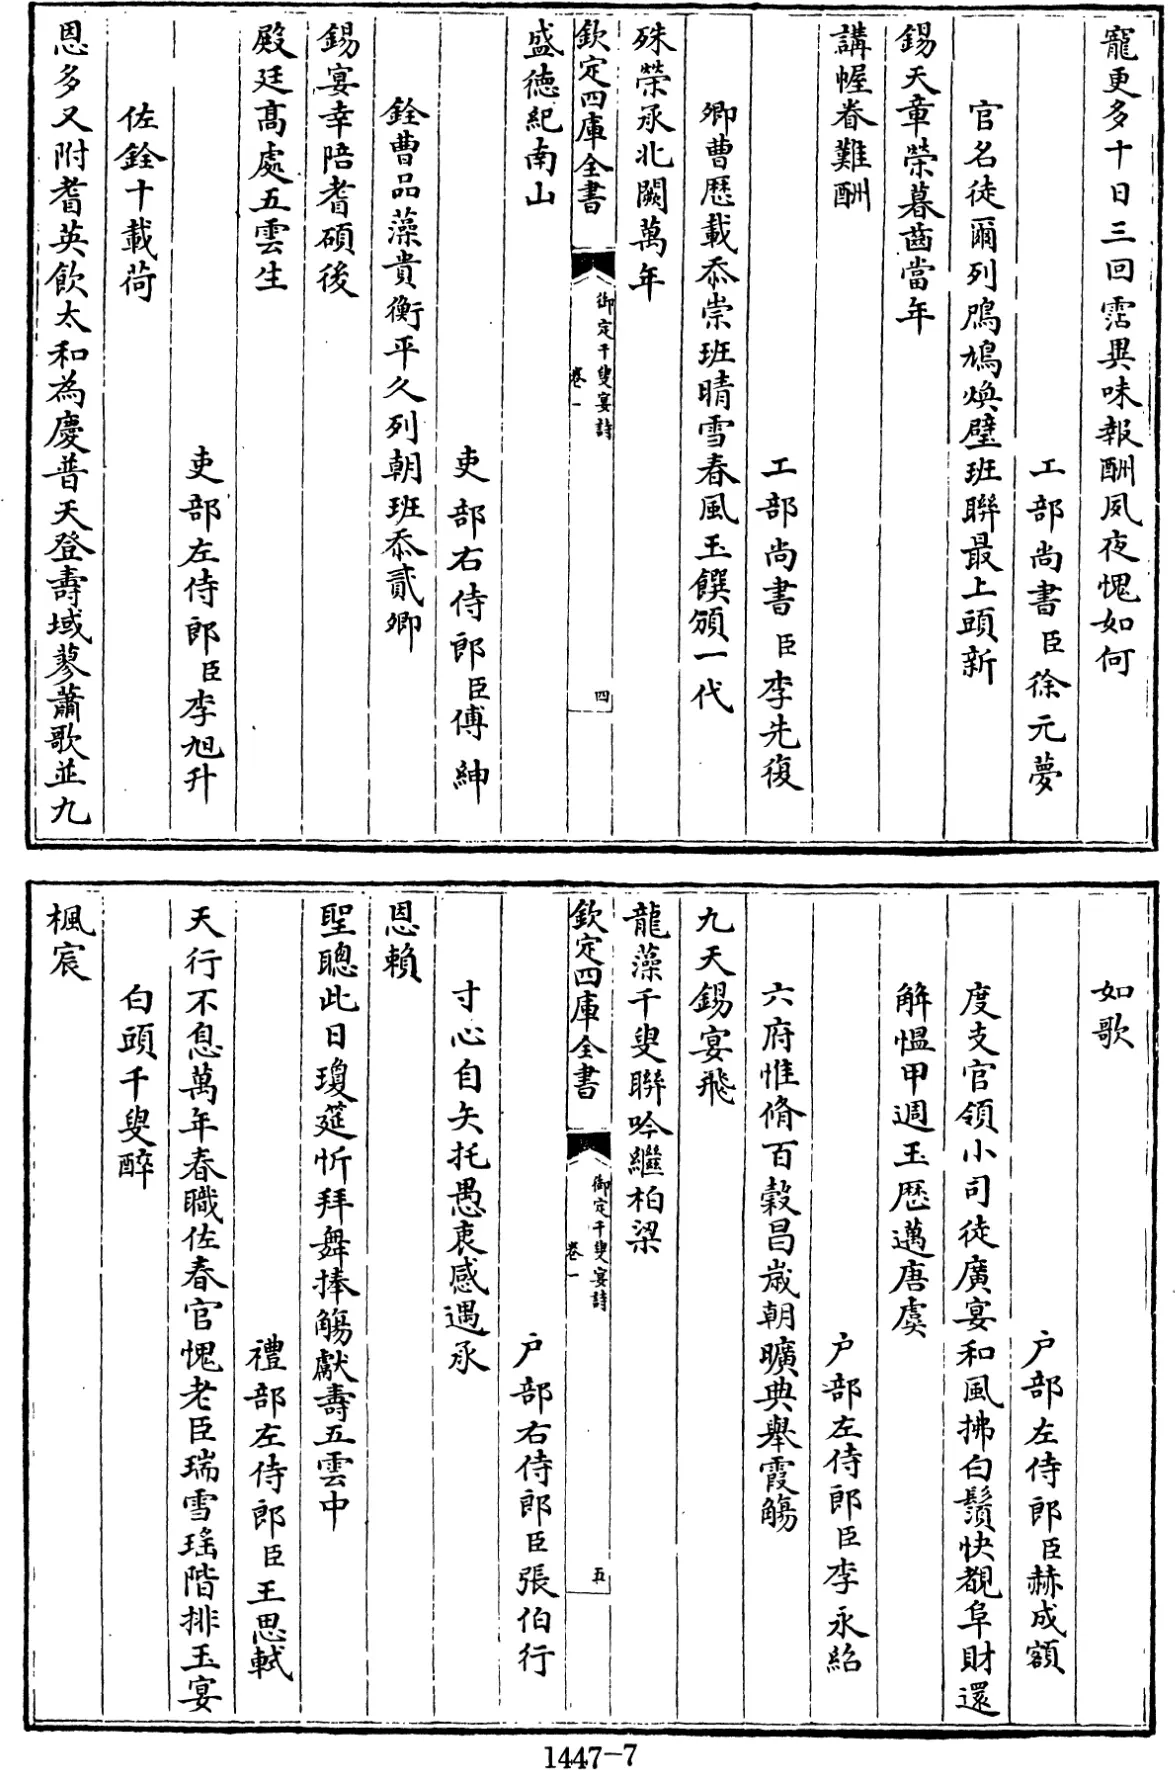 寵更多十日三回霑異味報酬夙夜愧如何
工部尚書臣徐元夢
官名徒爾列鳲鳩煥璧班聯最上頭新
錫天章榮暮齒當年
講幄眷難酬
工部尚書臣李先復
卿曹歴載忝崇班晴雪春風玉饌頒一代
殊榮承北闕萬年
欽定四庫全書
御定千叟宴詩
卷一
四
盛徳紀南山
吏部右侍郎臣傅紳
銓曹品藻貴衡平久列朝班忝貳卿
錫宴幸陪耆碩後
殿廷高處五雲生
吏部左侍郎臣李旭升
佐銓十載荷
恩多又附耆英飲太和為慶普天登壽域蓼蕭歌並九
如歌
户部左侍郎臣赫成額
度支官領小司徒廣宴和風拂白鬚快覩阜財還
解愠甲週玉歴邁唐虞
户部左侍郎臣李永紹
六府惟脩百穀昌歲朝曠典舉霞觴
九天錫宴飛
龍藻千叟聯吟繼柏梁
欽定四庫全書
御定千叟宴詩
卷一
五
户部右侍郎臣張伯行
寸心自矢托愚衷感遇承
恩賴
聖聰此日瓊筵忻拜舞捧觴獻壽五雲中
禮部左侍郎臣王思軾
天行不息萬年春職佐春官愧老臣瑞雪瑤階排玉宴
白頭千叟醉
楓宸
1447-7